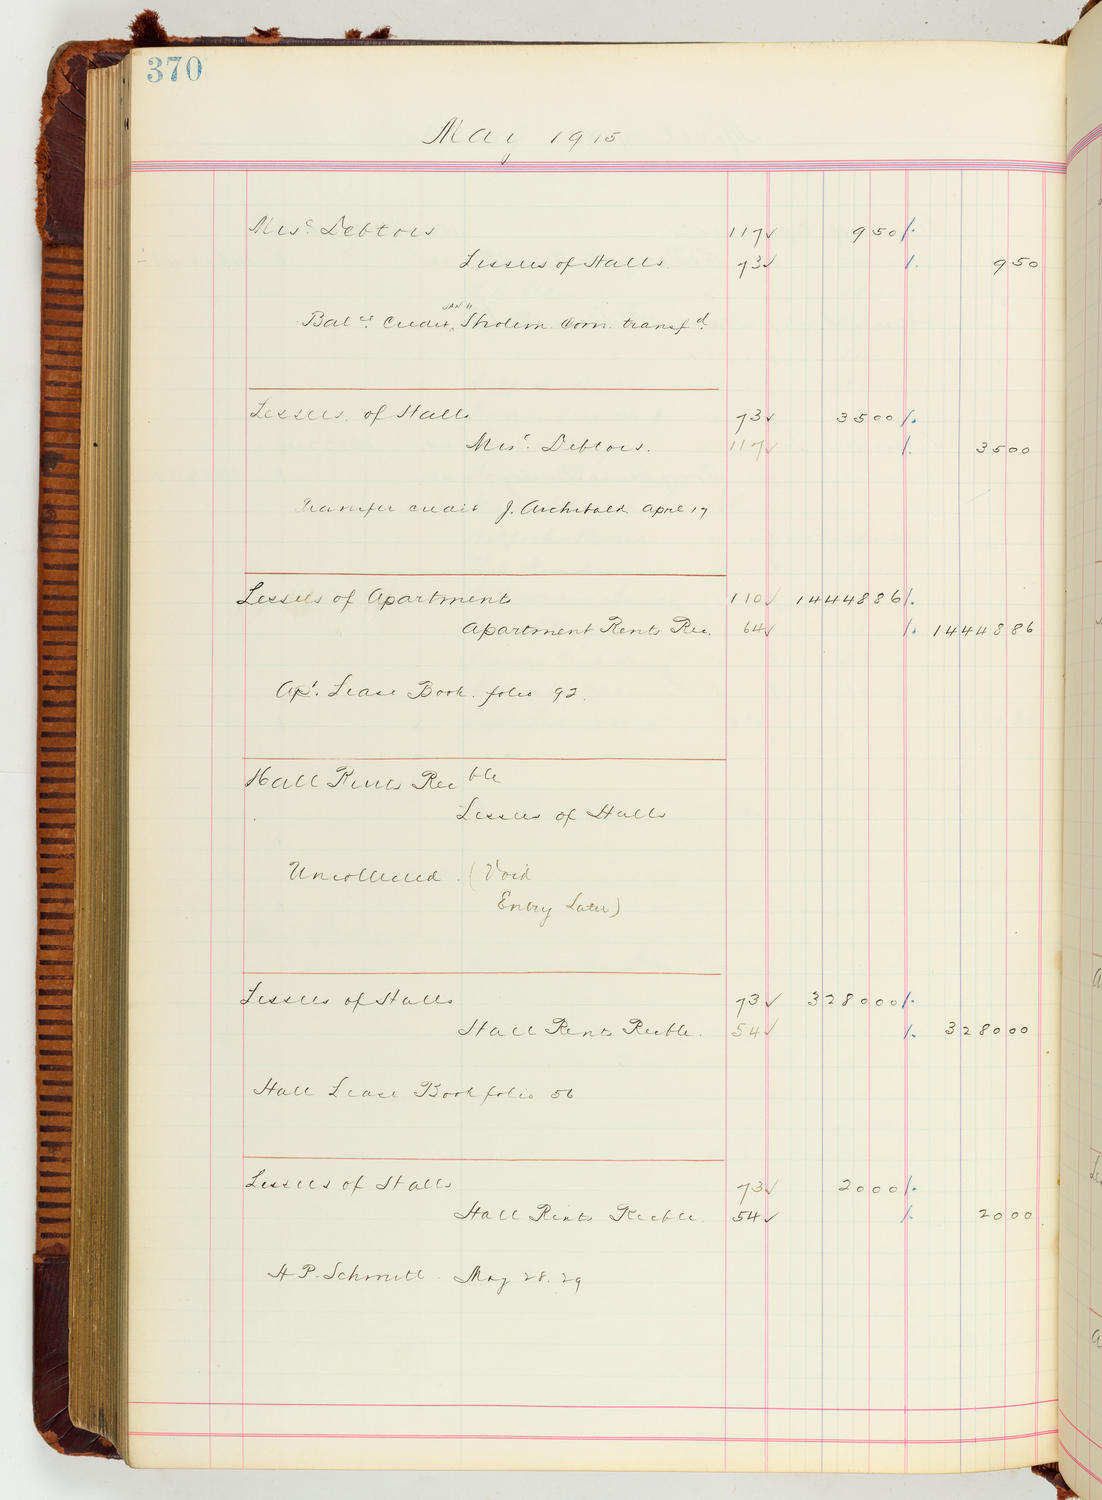 370
May 1915
Misc. Debtors 117✓ 950/.
Lessees of Halls 73✓ /. 950
JAN 11
Balce. Credit, Sholem. Com. transfd.
Lessees. of Halls 73✓ 3500/.
Misc. Debtors. 117✓ /. 3500
Transfer credit J. Archibald April 17
Lessees of Apartments 110✓ 1444886/.
Apartment Rents Rec. 64✓ /. 1444886
Apt. Lease Book. folio 92.
Hall Rents Recble
Lessees of Halls
Uncollected. (Void
Entry Later)
Lessees of Halls 73✓ 328000/.
Hall Rents Recble. 54✓ /. 328000
Hall Lease Book folio 56
Lessees of Halls 73✓ 2000/.
Hall Rents Recble. 54✓ /. 2000
H P. Schmitt. May 28. 29